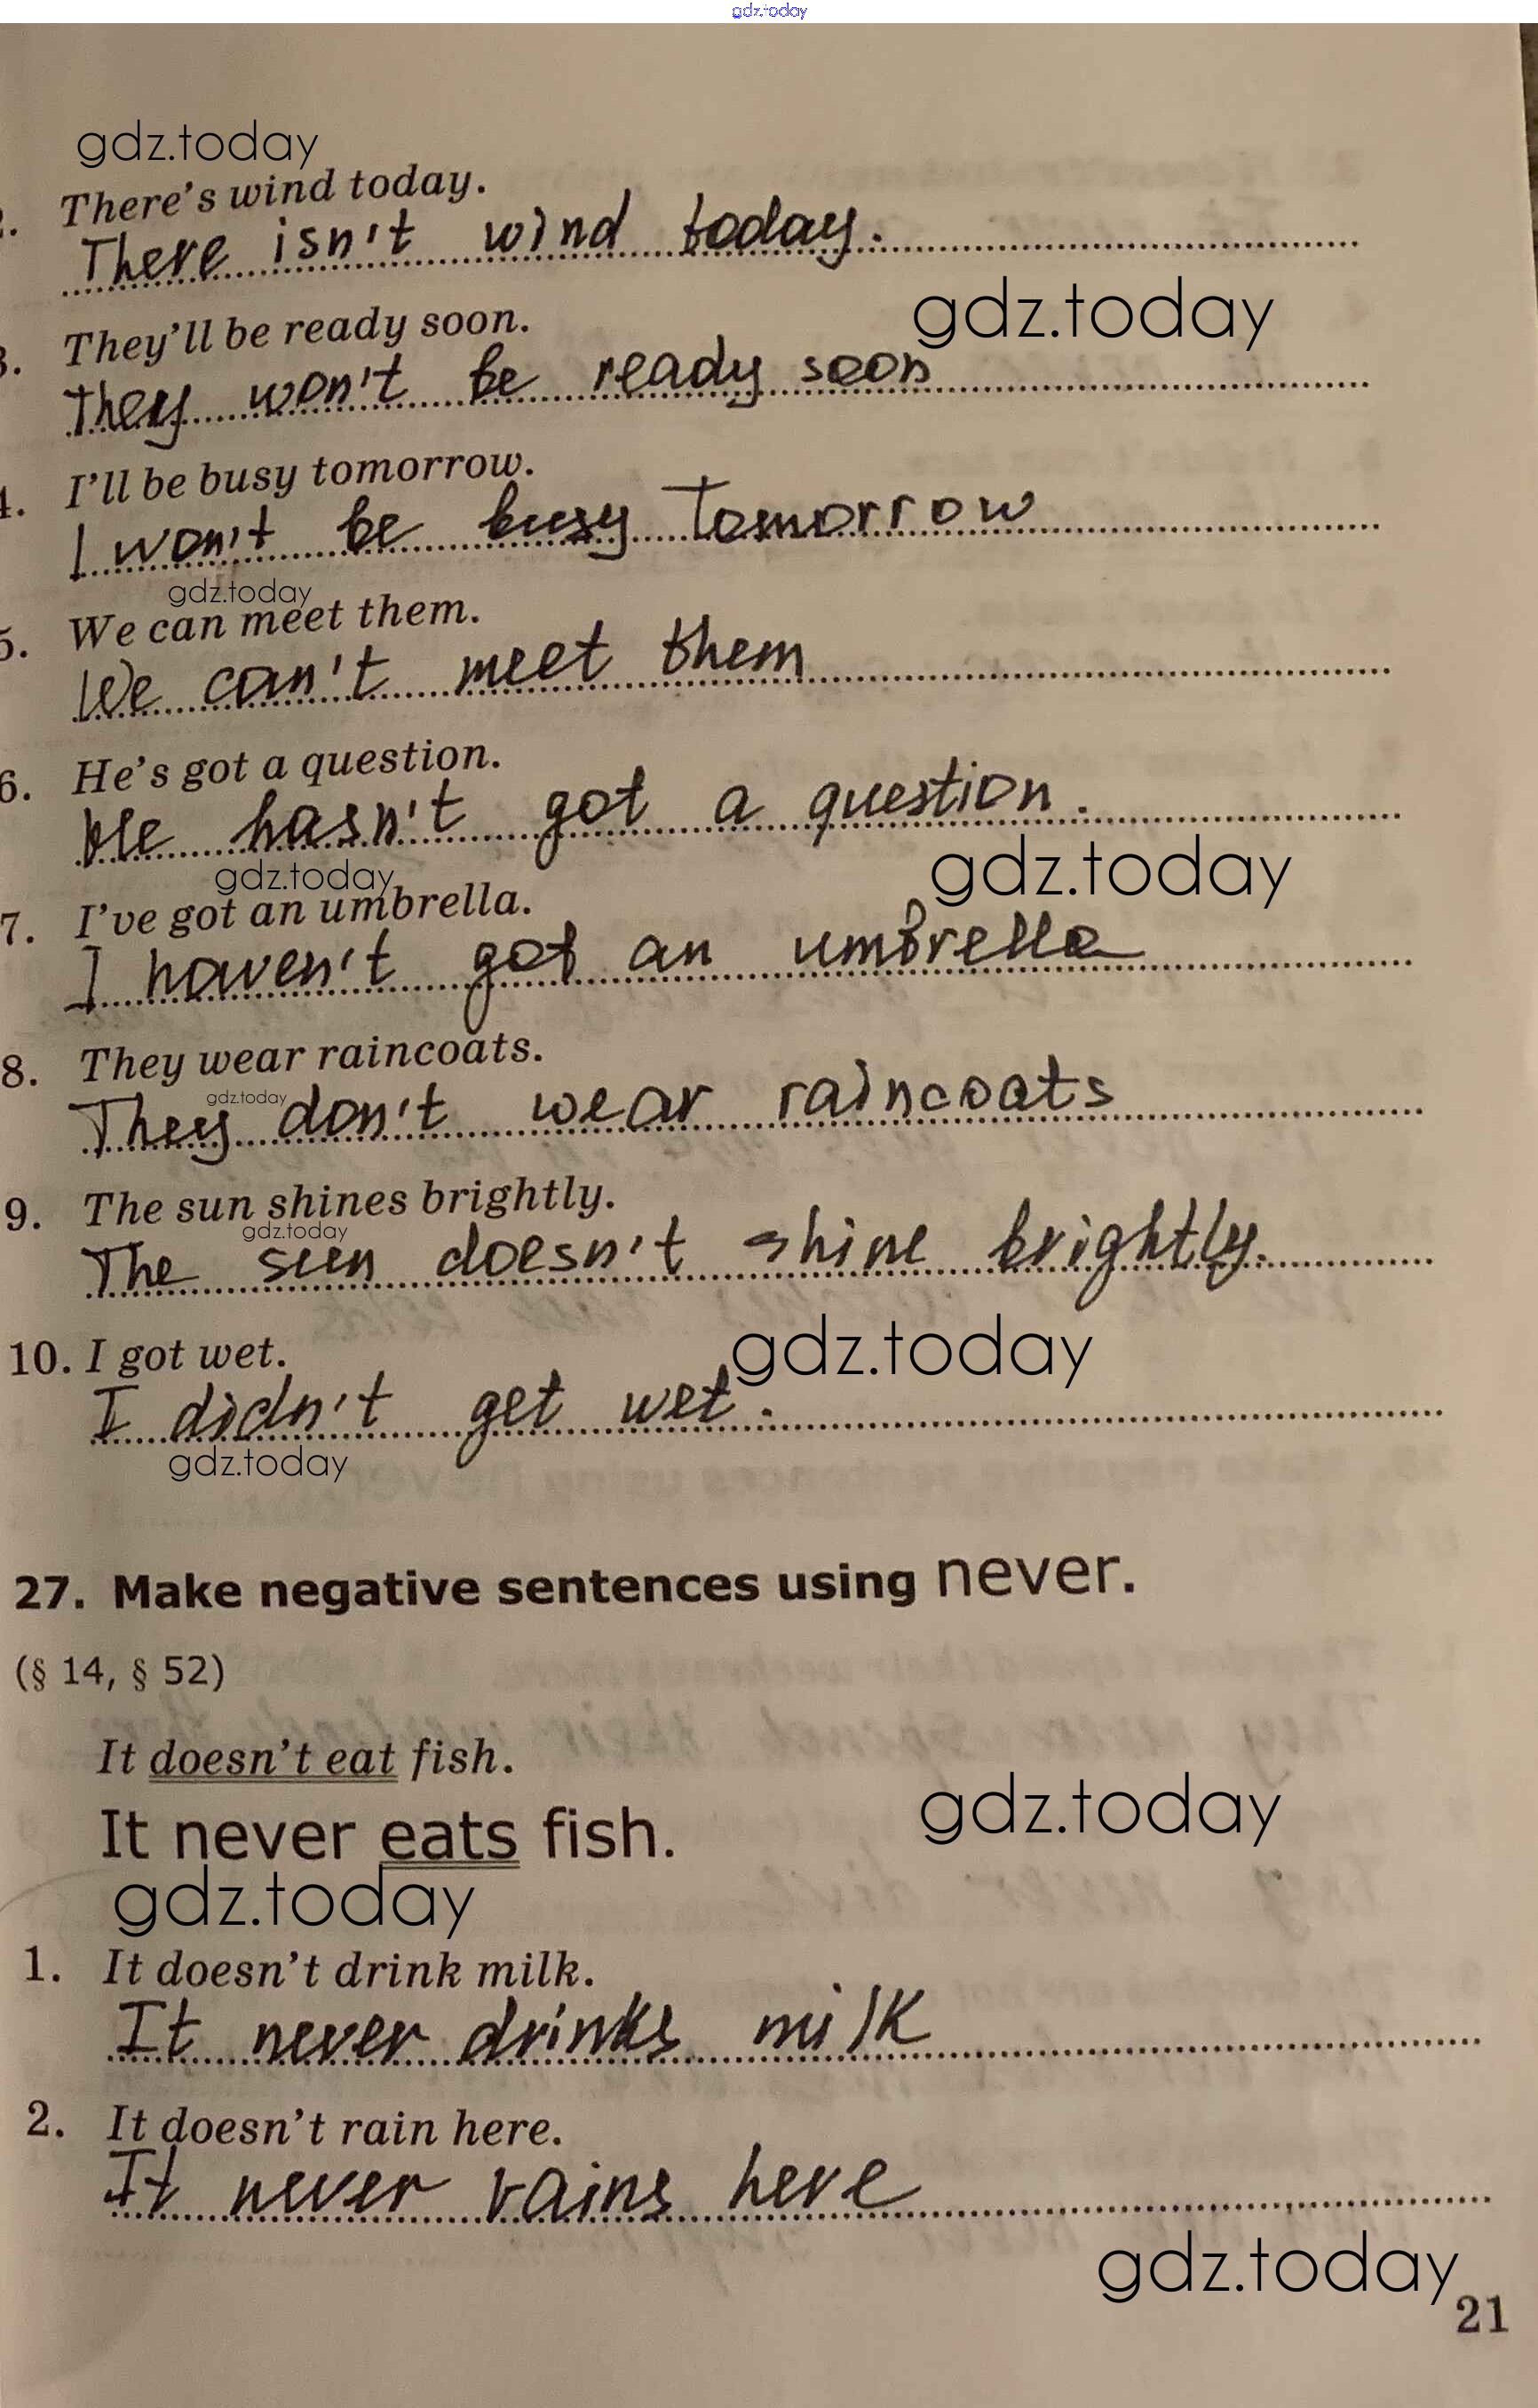 gdz.today
gdz.today
There's wind today.
There isn't wind today.
gdz.today
3. They'll be ready soon.
They won't be ready soon
4. I'll be busy tomorrow.
I won't be busy tomorrow
gdz.today
5. We can meet them.
We can't meet them
6. He's got a question.
He hasn't got a question.
gdz.today
gdz.today
7. I've got an umbrella.
I haven't got an umbrella
8. They wear raincoats.
gdz.today
They don't wear raincoats
9. The sun shines brightly.
gdz.today
The sun doesn't shine brightly.
gdz.today
10. I got wet.
I didn't get wet.
gdz.today
27. Make negative sentences using never.
(§ 14, § 52)
It doesn't eat fish.
gdz.today
It never eats fish.
gdz.today
1. It doesn't drink milk.
It never drinks milk
2. It doesn't rain here.
It never rains here
gdz.today
21